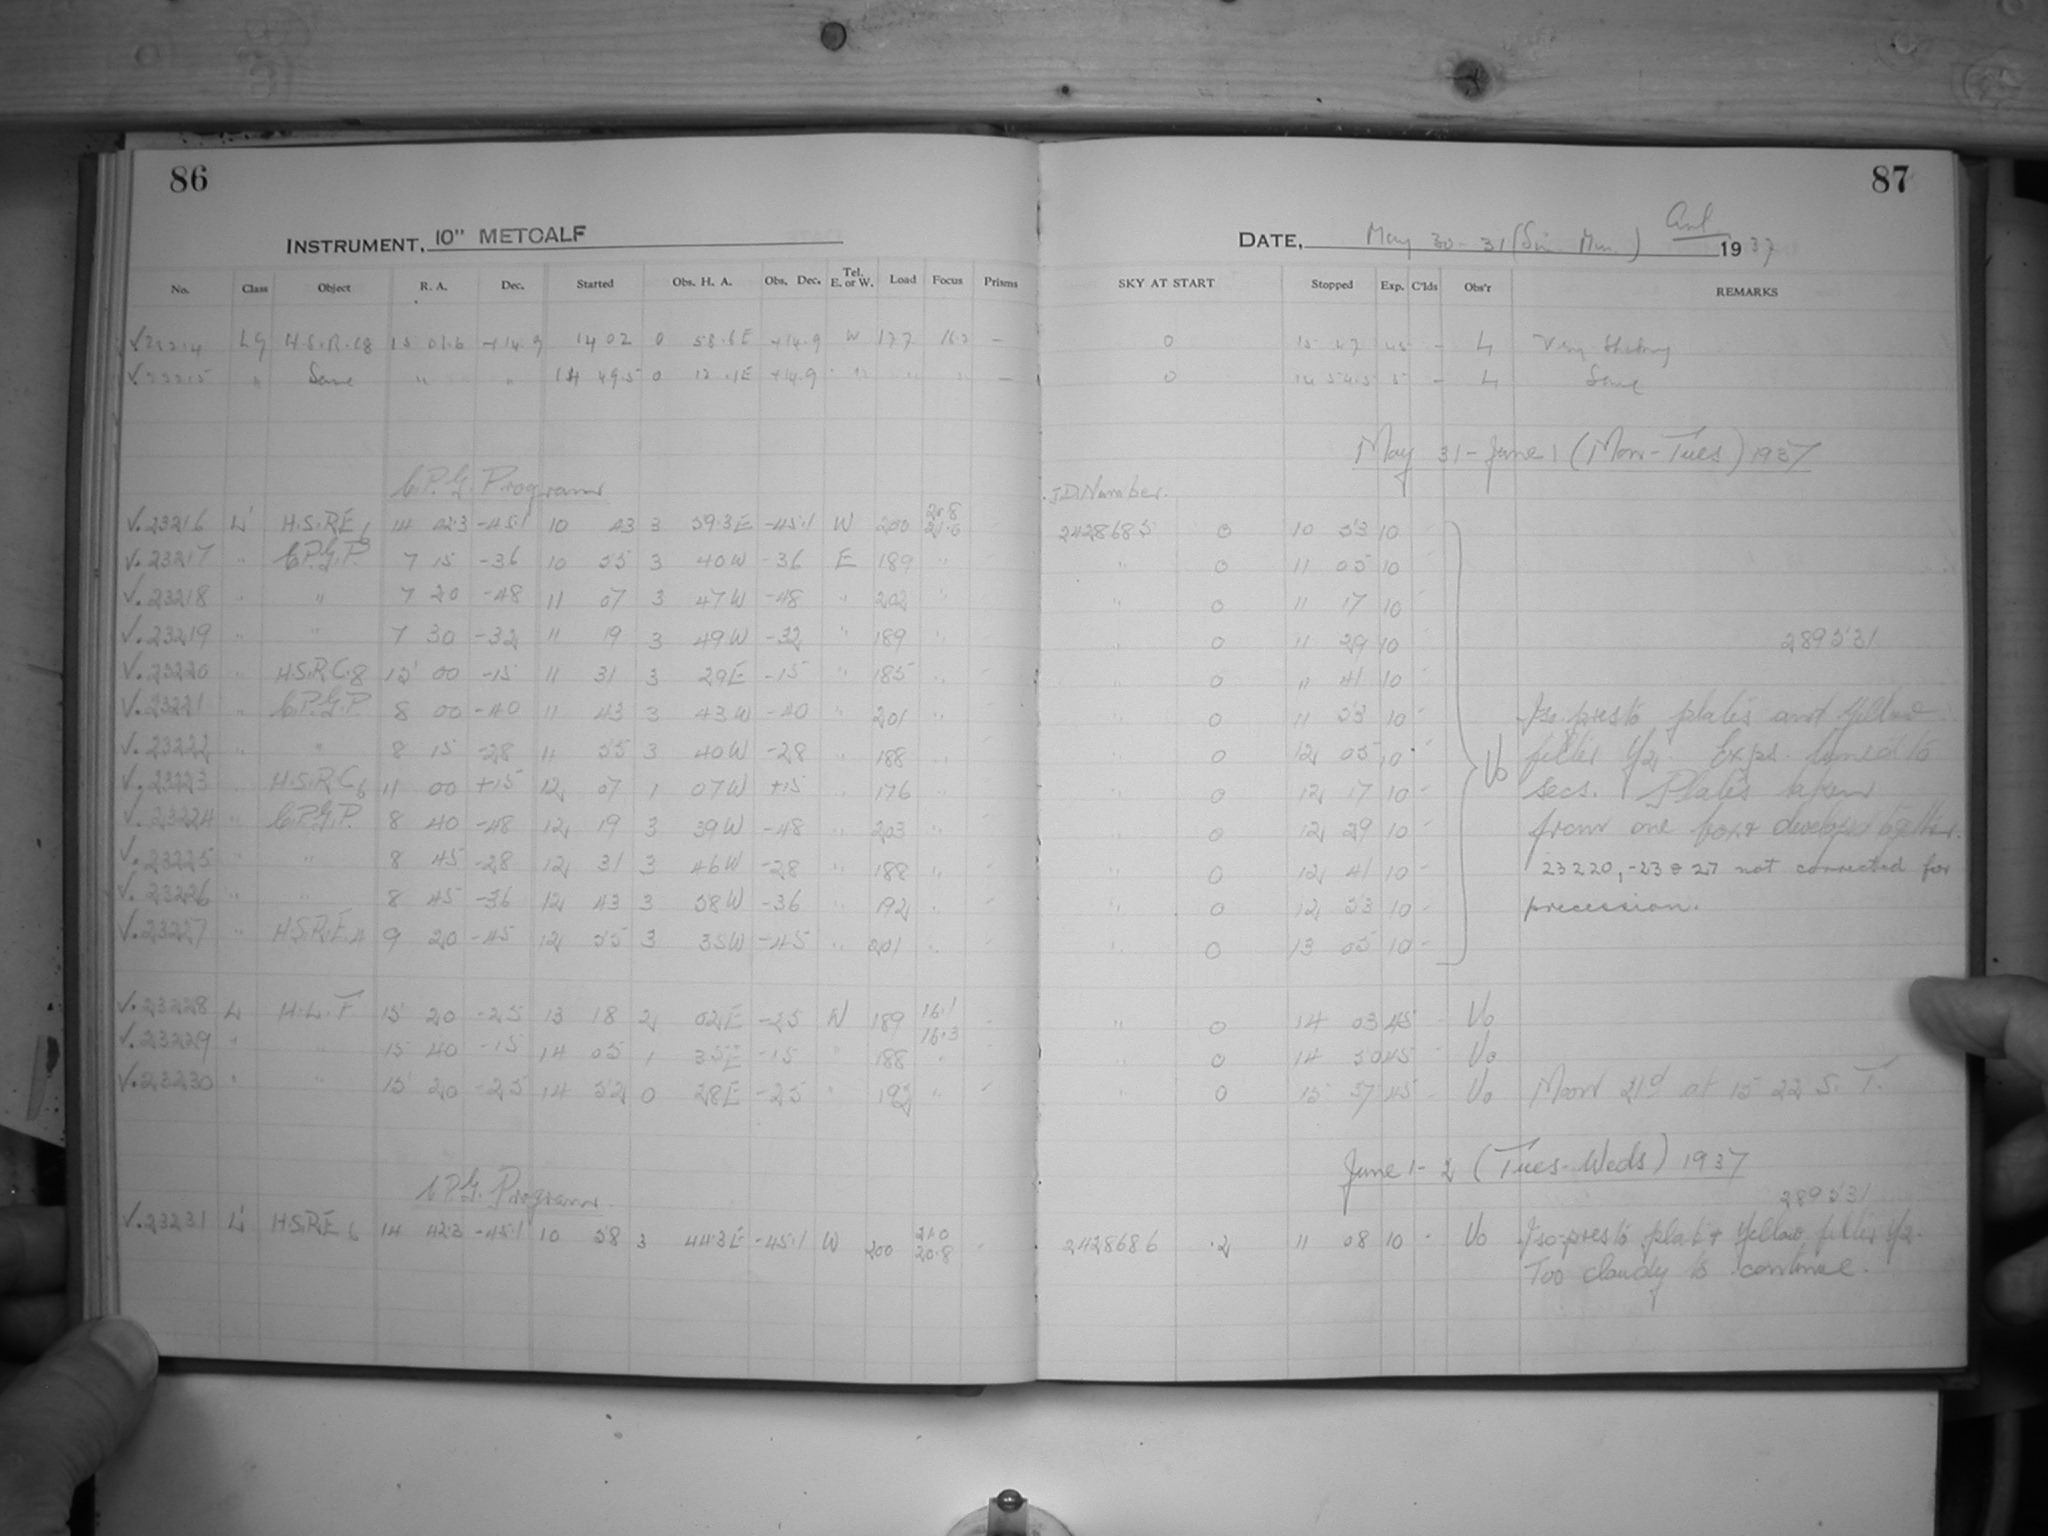 86
INSTRUMENT, 10" METCALF
No. Class Object R. A. Dec. Started Obs. H. A. Obs. Dec. Tel. E. or W. Load Focus Prisms
V23214 L9 H.S.R. C8 15 01.6 +14.9 14 02 0 58.6E +14.9 W 177 16.2 –
V23215 " Same " " 14 49.5 0 12.1E +14.9 " " " –
C.P.G. Program
V.23216 L' H.S.R.E6 14 42.3 -45.1 10 43 3 59.3E -45.1 W 200 20.8 21.0
V.23217 " C.P.G.P. 7 15 -36 10 55 3 40W -36 E 189 "
V.23218 " " 7 20 -48 11 07 3 47W -48 " 202 "
V.23219 " " 7 30 -32 11 19 3 49W -32 " 189 "
V.23220 " H.S.R.C.8 15 00 -15 11 31 3 29E -15 " 185 "
V.23221 " C.P.G.P. 8 00 -40 11 43 3 43W -40 " 201 "
V.23222 " " 8 15 -28 11 55 3 40W -28 " 188 "
V.23223 H.S.R.C6 11 00 +15 12 07 1 07W +15 " 176 "
V.23224 " C.P.G.P. 8 40 -48 12 19 3 39W -48 " 203 "
V.23225 " " 8 45 -28 12 31 3 46W -28 " 188 "
V.23226 " " 8 45 -36 12 43 3 58W -36 " 192 "
V.23227 " H.S.R.E.4 9 20 -45 12 55 3 35W -45 " 201 "
V.23228 L H.L.F 15 20 -25 13 18 2 02E -25 W 189 16.1 16.3
V.23229 " " 15 40 -15 14 05 1 35E -15 " 188 "
V.23230 " " 15 20 -25 14 52 0 28E -25 " 192 "
C.P.G. Program
V.23231 L' H.S.R.E6 14 42.3 -45.1 10 58 3 44.3E -45.1 W 200 21.0 20.8
87
DATE, May 30-31 (Sun. Mon.) 1937
SKY AT START Stopped Exp. C'lds Obs'r REMARKS
0 45 – L Very
0 14 54.5 5 – L Same
May 31 - June 1 (Mon-Tues) 1937
J.D. Number.
2428685 0 10 53 10
" 0 11 05 10
" 0 11 17 10
" 0 11 29 10 289531
" 0 11 41 10
" 0 11 53 10 Iso-presto plates and Yellow
" 0 12 05 10 Vo filter Y2. Exps. timed to
0 12 17 10 secs. Plates taken
" 0 12 29 10 from one box & developed together.
" 0 12 41 10 23220, -23 & 27 not corrected for
" 0 12 53 10 precession.
" 0 13 05 10
" 0 14 03 45 Vo
" 0 14 50 45 Vo
" 0 15 37 45 Vo Moon 21d at 15 22 S. T.
June 1-2 (Tues-Weds) 1937
289531
2428686 .2 11 08 10 Vo Iso-presto plate & Yellow filter Y2.
Too cloudy to continue.